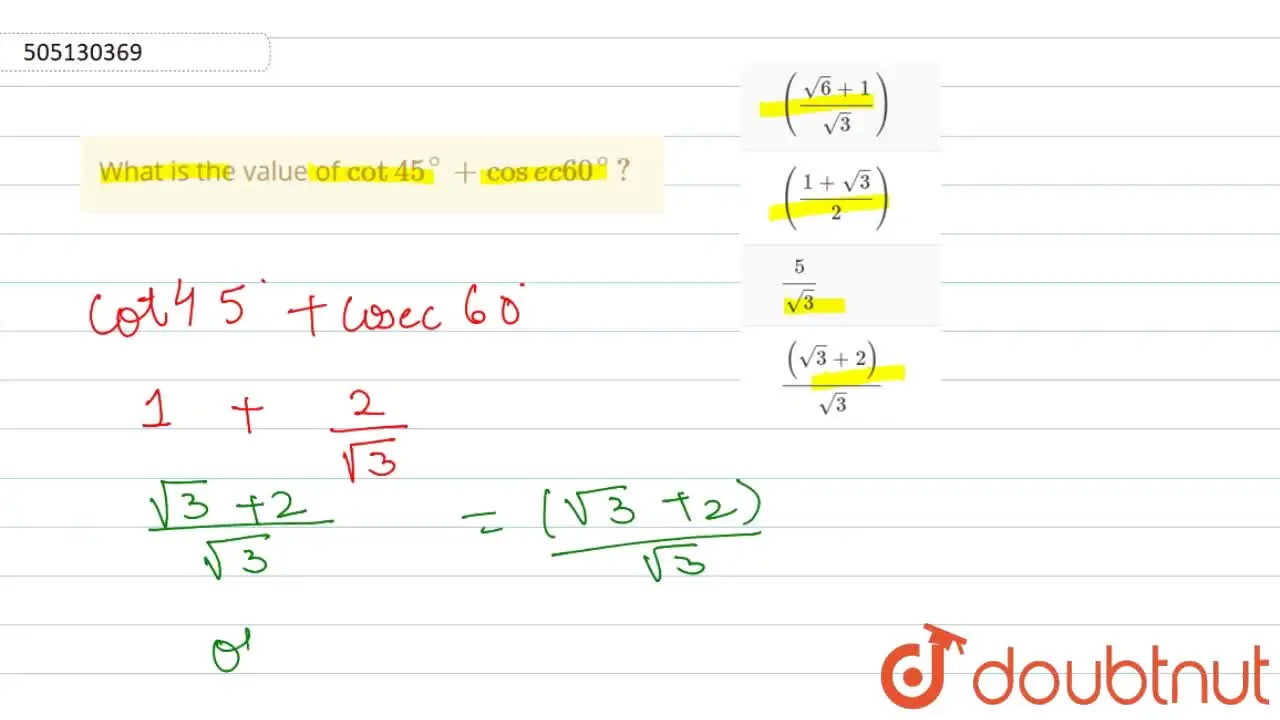 505130369
What is the value of cot 45° + cosec60° ?
(√6 + 1 / √3)
(1 + √3 / 2)
5 / √3
(√3 + 2) / √3
cot 45° + cosec 60°
1 + 2 / √3
√3 + 2 / √3 = (√3 + 2) / √3
doubtnut